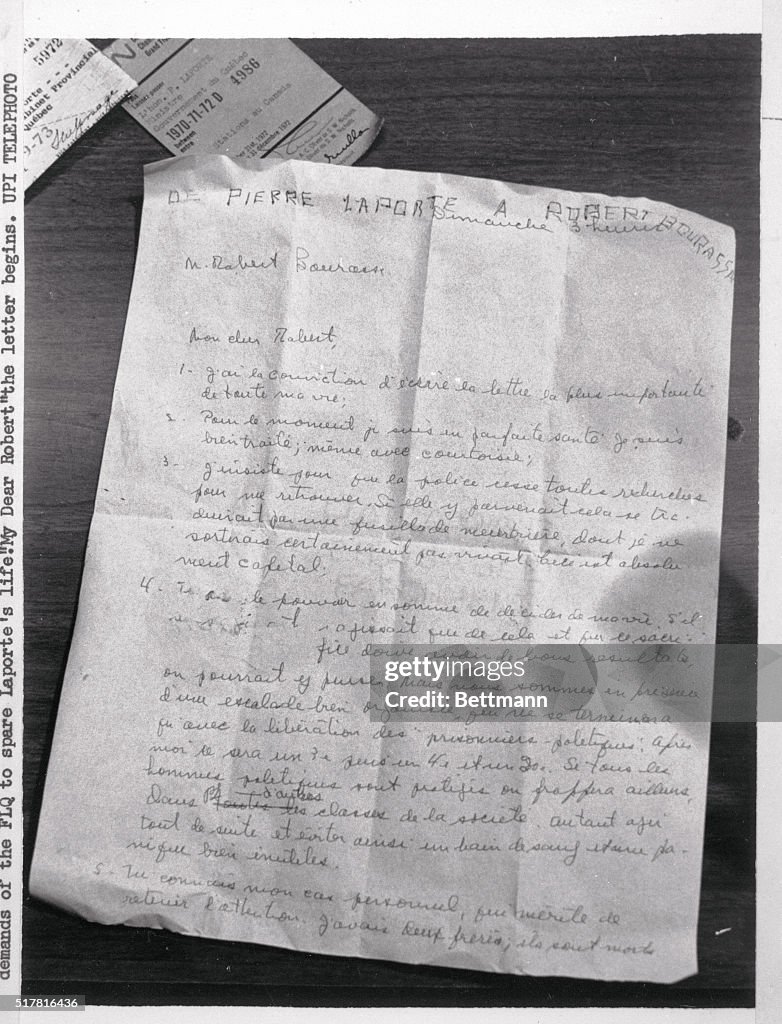 5972
binet Provincial
Québec
4986
l'hon. P. LAPORTE
Ministre
Gouvernement du Québec
1970-71-72 D
Stations au Canada
between
entre
DE PIERRE LAPORTE A ROBERT BOURASSA
Dimanche 3 heures
M. Robert Bourassa
Mon cher Robert,
1- J'ai la conviction d'écrire la lettre la plus importante
de toute ma vie;
2. Pour le moment je suis en parfaite santé. Je suis
bien traité, même avec courtoisie;
3- J'insiste pour que la police cesse toutes recherches
pour me retrouver. Si elle y parvenait cela se tra-
duirait par une fusillade meurtrière, dont je ne
sortirais certainement pas vivant. Ceci est absolu
ment capital;
4. le pouvoir en somme de décider de ma vie. S'il
s'agissait que de cela et que ce sacri-
fice doive avoir de bons résultats,
on pourrait y penser. Mais nous sommes en présence
d'une escalade bien organisée, qui ne se terminera
qu'avec la libération des "prisonniers politiques". Après
moi ce sera un 3e puis un 4e et un 20e. Si tous les
hommes politiques sont protégés on frappera ailleurs,
dans d'autres classes de la société. Autant agir
tout de suite et éviter ainsi un bain de sang et une pa-
nique bien inutiles.
5- Tu connais mon cas personnel, qui mérite de
retenir l'attention. J'avais deux frères; ils sont morts
demands of the FLQ to spare Laporte's life."My Dear Robert"the letter begins. UPI TELEPHOTO
gettyimages®
Bettmann
517816436